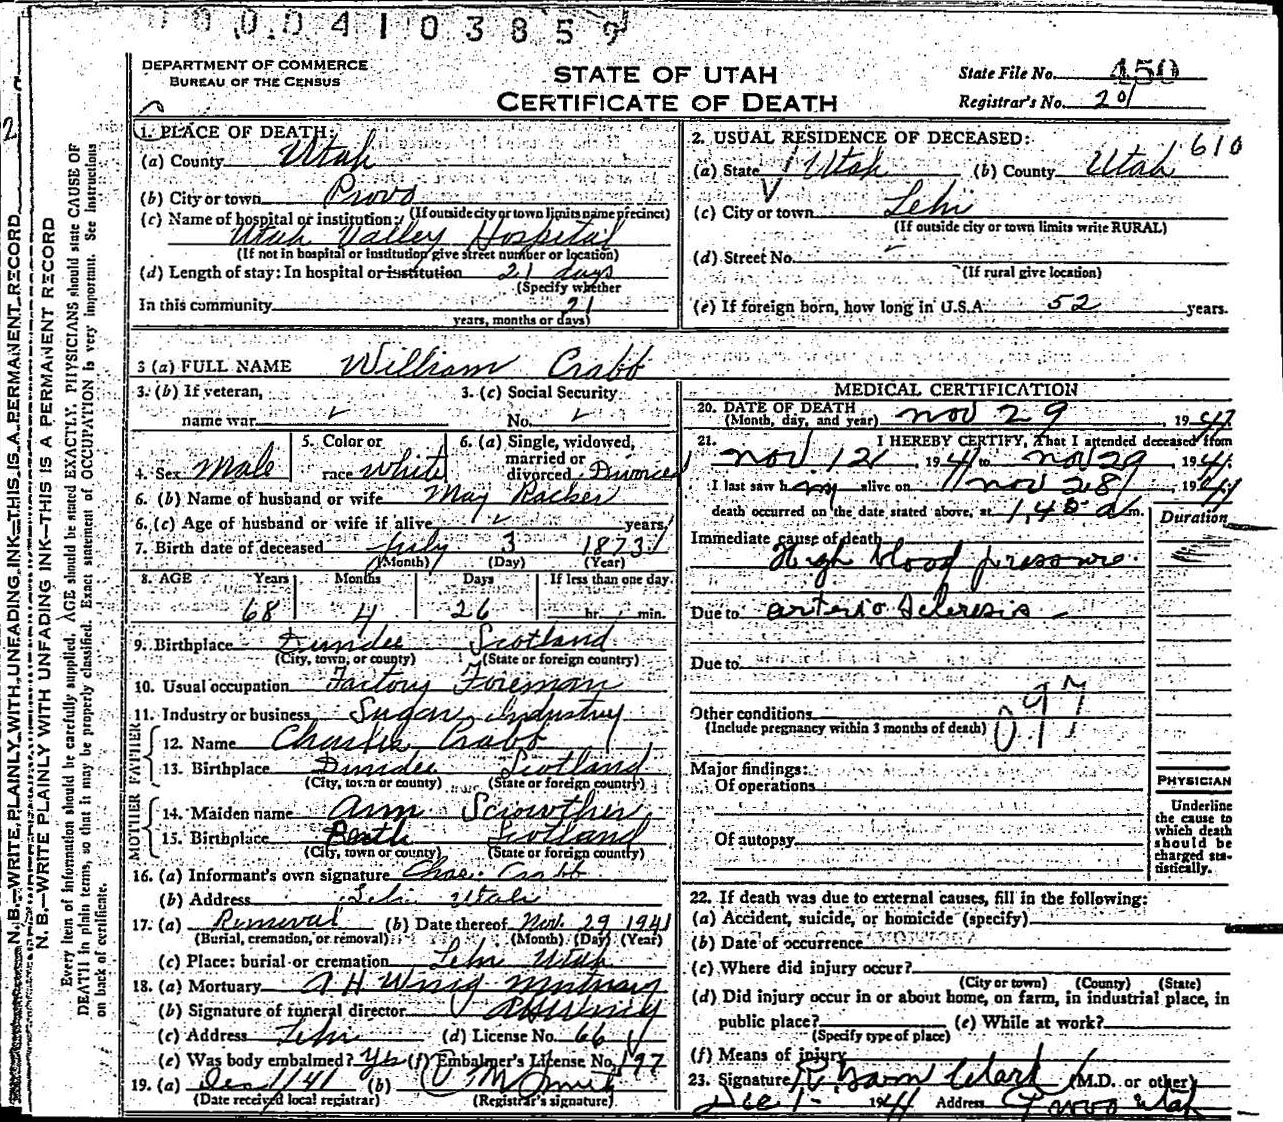 00004103859
DEPARTMENT OF COMMERCE
BUREAU OF THE CENSUS
STATE OF UTAH
CERTIFICATE OF DEATH
State File No. 450
Registrar's No. 201
1. PLACE OF DEATH:
(a) County Utah
(b) City or town Provo
(If outside city or town limits name precinct)
(c) Name of hospital or institution:
Utah Valley Hospital
(If not in hospital or institution give street number or location)
(d) Length of stay: In hospital or institution 21 days
(Specify whether
In this community 21
years, months or days)
2. USUAL RESIDENCE OF DECEASED: 610
(a) State Utah (b) County Utah
(c) City or town Lehi
(If outside city or town limits write RURAL)
(d) Street No.
(If rural give location)
(e) If foreign born, how long in U.S.A. 52 years.
3 (a) FULL NAME William Crabb
3. (b) If veteran,
name war
3. (c) Social Security
No.
4. Sex Male
5. Color or
race white
6. (a) Single, widowed,
married or
divorced Divorced
6. (b) Name of husband or wife May
6. (c) Age of husband or wife if alive years.
7. Birth date of deceased July 3 1873
(Month) (Day) (Year)
8. AGE Years Months Days If less than one day
68 4 26 hr. min.
9. Birthplace Dundee Scotland
(City, town, or county) (State or foreign country)
10. Usual occupation Factory Foreman
11. Industry or business Sugar Industry
FATHER
12. Name Charles Crabb
13. Birthplace Dundee Scotland
(City, town or county) (State or foreign country)
MOTHER
14. Maiden name Ann
15. Birthplace Perth Scotland
(City, town or county) (State or foreign country)
16. (a) Informant's own signature Chas. Crabb
(b) Address Lehi Utah
17. (a) Removal (b) Date thereof Nov. 29 1941
(Burial, cremation, or removal) (Month) (Day) (Year)
(c) Place: burial or cremation Lehi Utah
18. (a) Mortuary A H Wing Mortuary
(b) Signature of funeral director
(c) Address Lehi (d) License No. 66
(e) Was body embalmed? Yes (f) Embalmer's License No. 197
19. (a) Dec 1/41 (b)
(Date received local registrar) (Registrar's signature)
MEDICAL CERTIFICATION
20. DATE OF DEATH
(Month, day, and year) Nov 29, 1941
21. I HEREBY CERTIFY, That I attended deceased from
Nov. 12, 1941 to Nov 29, 1941
I last saw him alive on Nov 28, 1941
death occurred on the date stated above, at 1,45 a m.
Duration
Immediate cause of death
High blood pressure
Due to arterio sclerosis
Due to
Other conditions
(Include pregnancy within 3 months of death) 097
Major findings:
Of operations
Of autopsy
PHYSICIAN
Underline
the cause to
which death
should be
charged sta-
tistically.
22. If death was due to external causes, fill in the following:
(a) Accident, suicide, or homicide (specify)
(b) Date of occurrence
(c) Where did injury occur?
(City or town) (County) (State)
(d) Did injury occur in or about home, on farm, in industrial place, in
public place? (e) While at work?
(Specify type of place)
(f) Means of injury
23. Signature Clark (M.D. or other)
Dec 1 - 1941 Address Provo Utah
N. B.—WRITE PLAINLY WITH UNFADING INK—THIS IS A PERMANENT RECORD
N. B.—WRITE PLAINLY WITH UNFADING INK—THIS IS A PERMANENT RECORD
Every item of information should be carefully supplied. AGE should be stated EXACTLY. PHYSICIANS should state CAUSE OF
DEATH in plain terms, so that it may be properly classified. Exact statement of OCCUPATION is very important. See Instructions
on back of certificate.